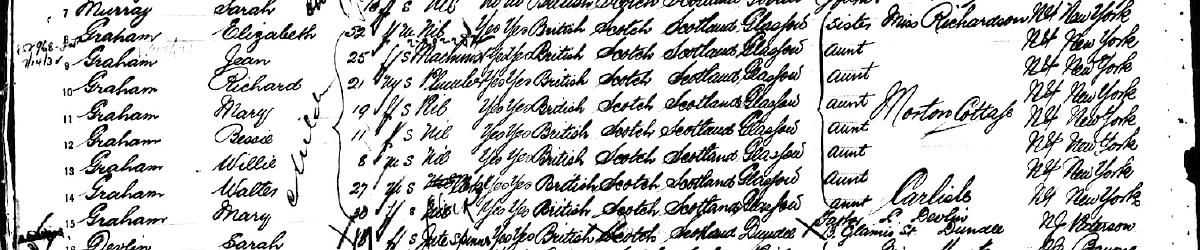 7 Murray Sarah f S Nil British Scotch Scotland
8 Graham Elizabeth 52 f m Nil Yes Yes British Scotch Scotland Glasgow sister Miss Richardson NY New York
9 Graham Jean 25 f S Machinist Yes Yes British Scotch Scotland Glasgow aunt NY New York
10 Graham Richard 21 m S Plumber Yes Yes British Scotch Scotland Glasgow aunt NY New York
11 Graham Mary 19 f S Nil Yes Yes British Scotch Scotland Glasgow aunt Morton Cottage NY New York
12 Graham Bessie 11 f S Nil Yes Yes British Scotch Scotland Glasgow aunt NY New York
13 Graham Willie 8 m S Nil Yes Yes British Scotch Scotland Glasgow aunt NY New York
14 Graham Walter 27 m S Yes Yes British Scotch Scotland Glasgow aunt Carlisle NY New York
15 Graham Mary f S Yes Yes British Scotch Scotland Glasgow aunt NY New York
Devlin Sarah 18 f S Jute Spinner Yes Yes British Scotch Scotland Dundee Father L. Devlin Glamis St Dundee NJ Paterson